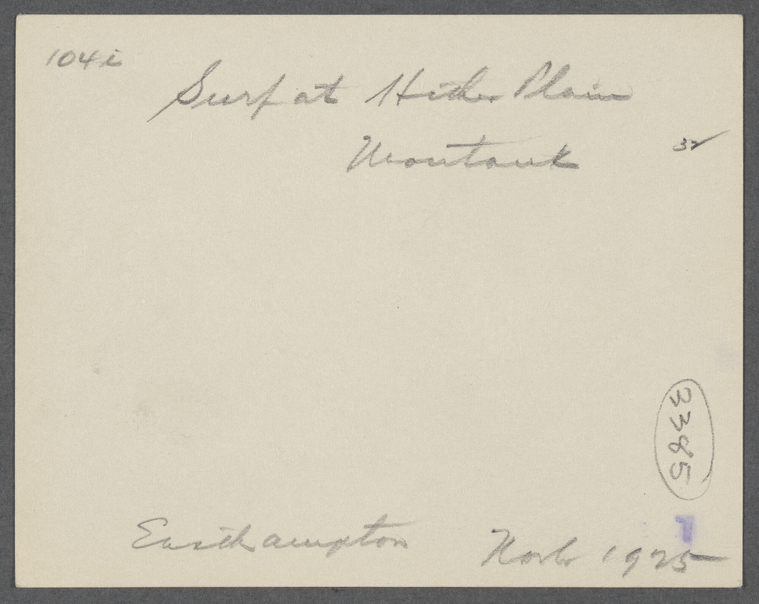 104i
Surf at Hither Plain
Montauk
32
3385
Easthampton Novbr 1925